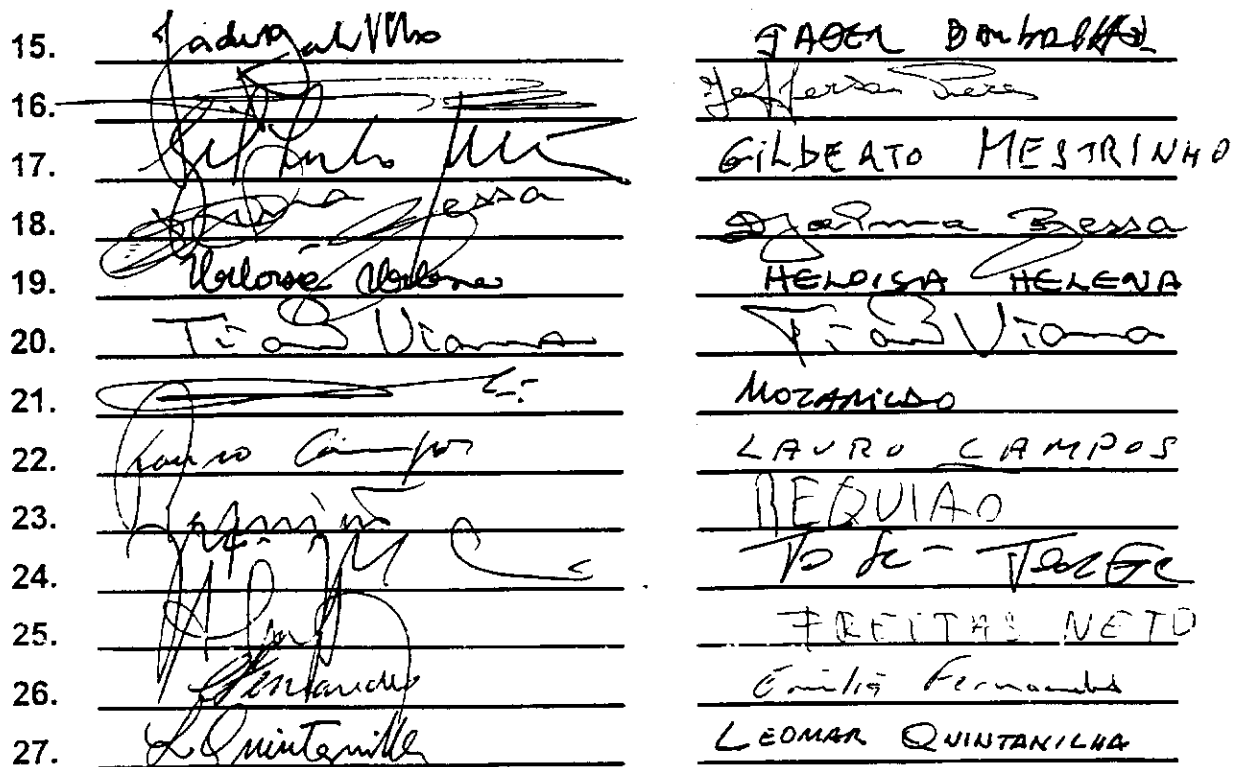 15. JADER BARBALHO
16. Jefferson Peres
17. GILBERTO MESTRINHO
18. Djalma Bessa
19. Heloisa Helena HELOISA HELENA
20. Tião Viana Tião Viana
21. MOZARILDO
22. Lauro Campos LAURO CAMPOS
23. Requião REQUIAO
24. JOSE JORGE
25. FREITAS NETO
26. EFernandes Emilia Fernandes
27. LQuintanilha LEOMAR QUINTANILHA